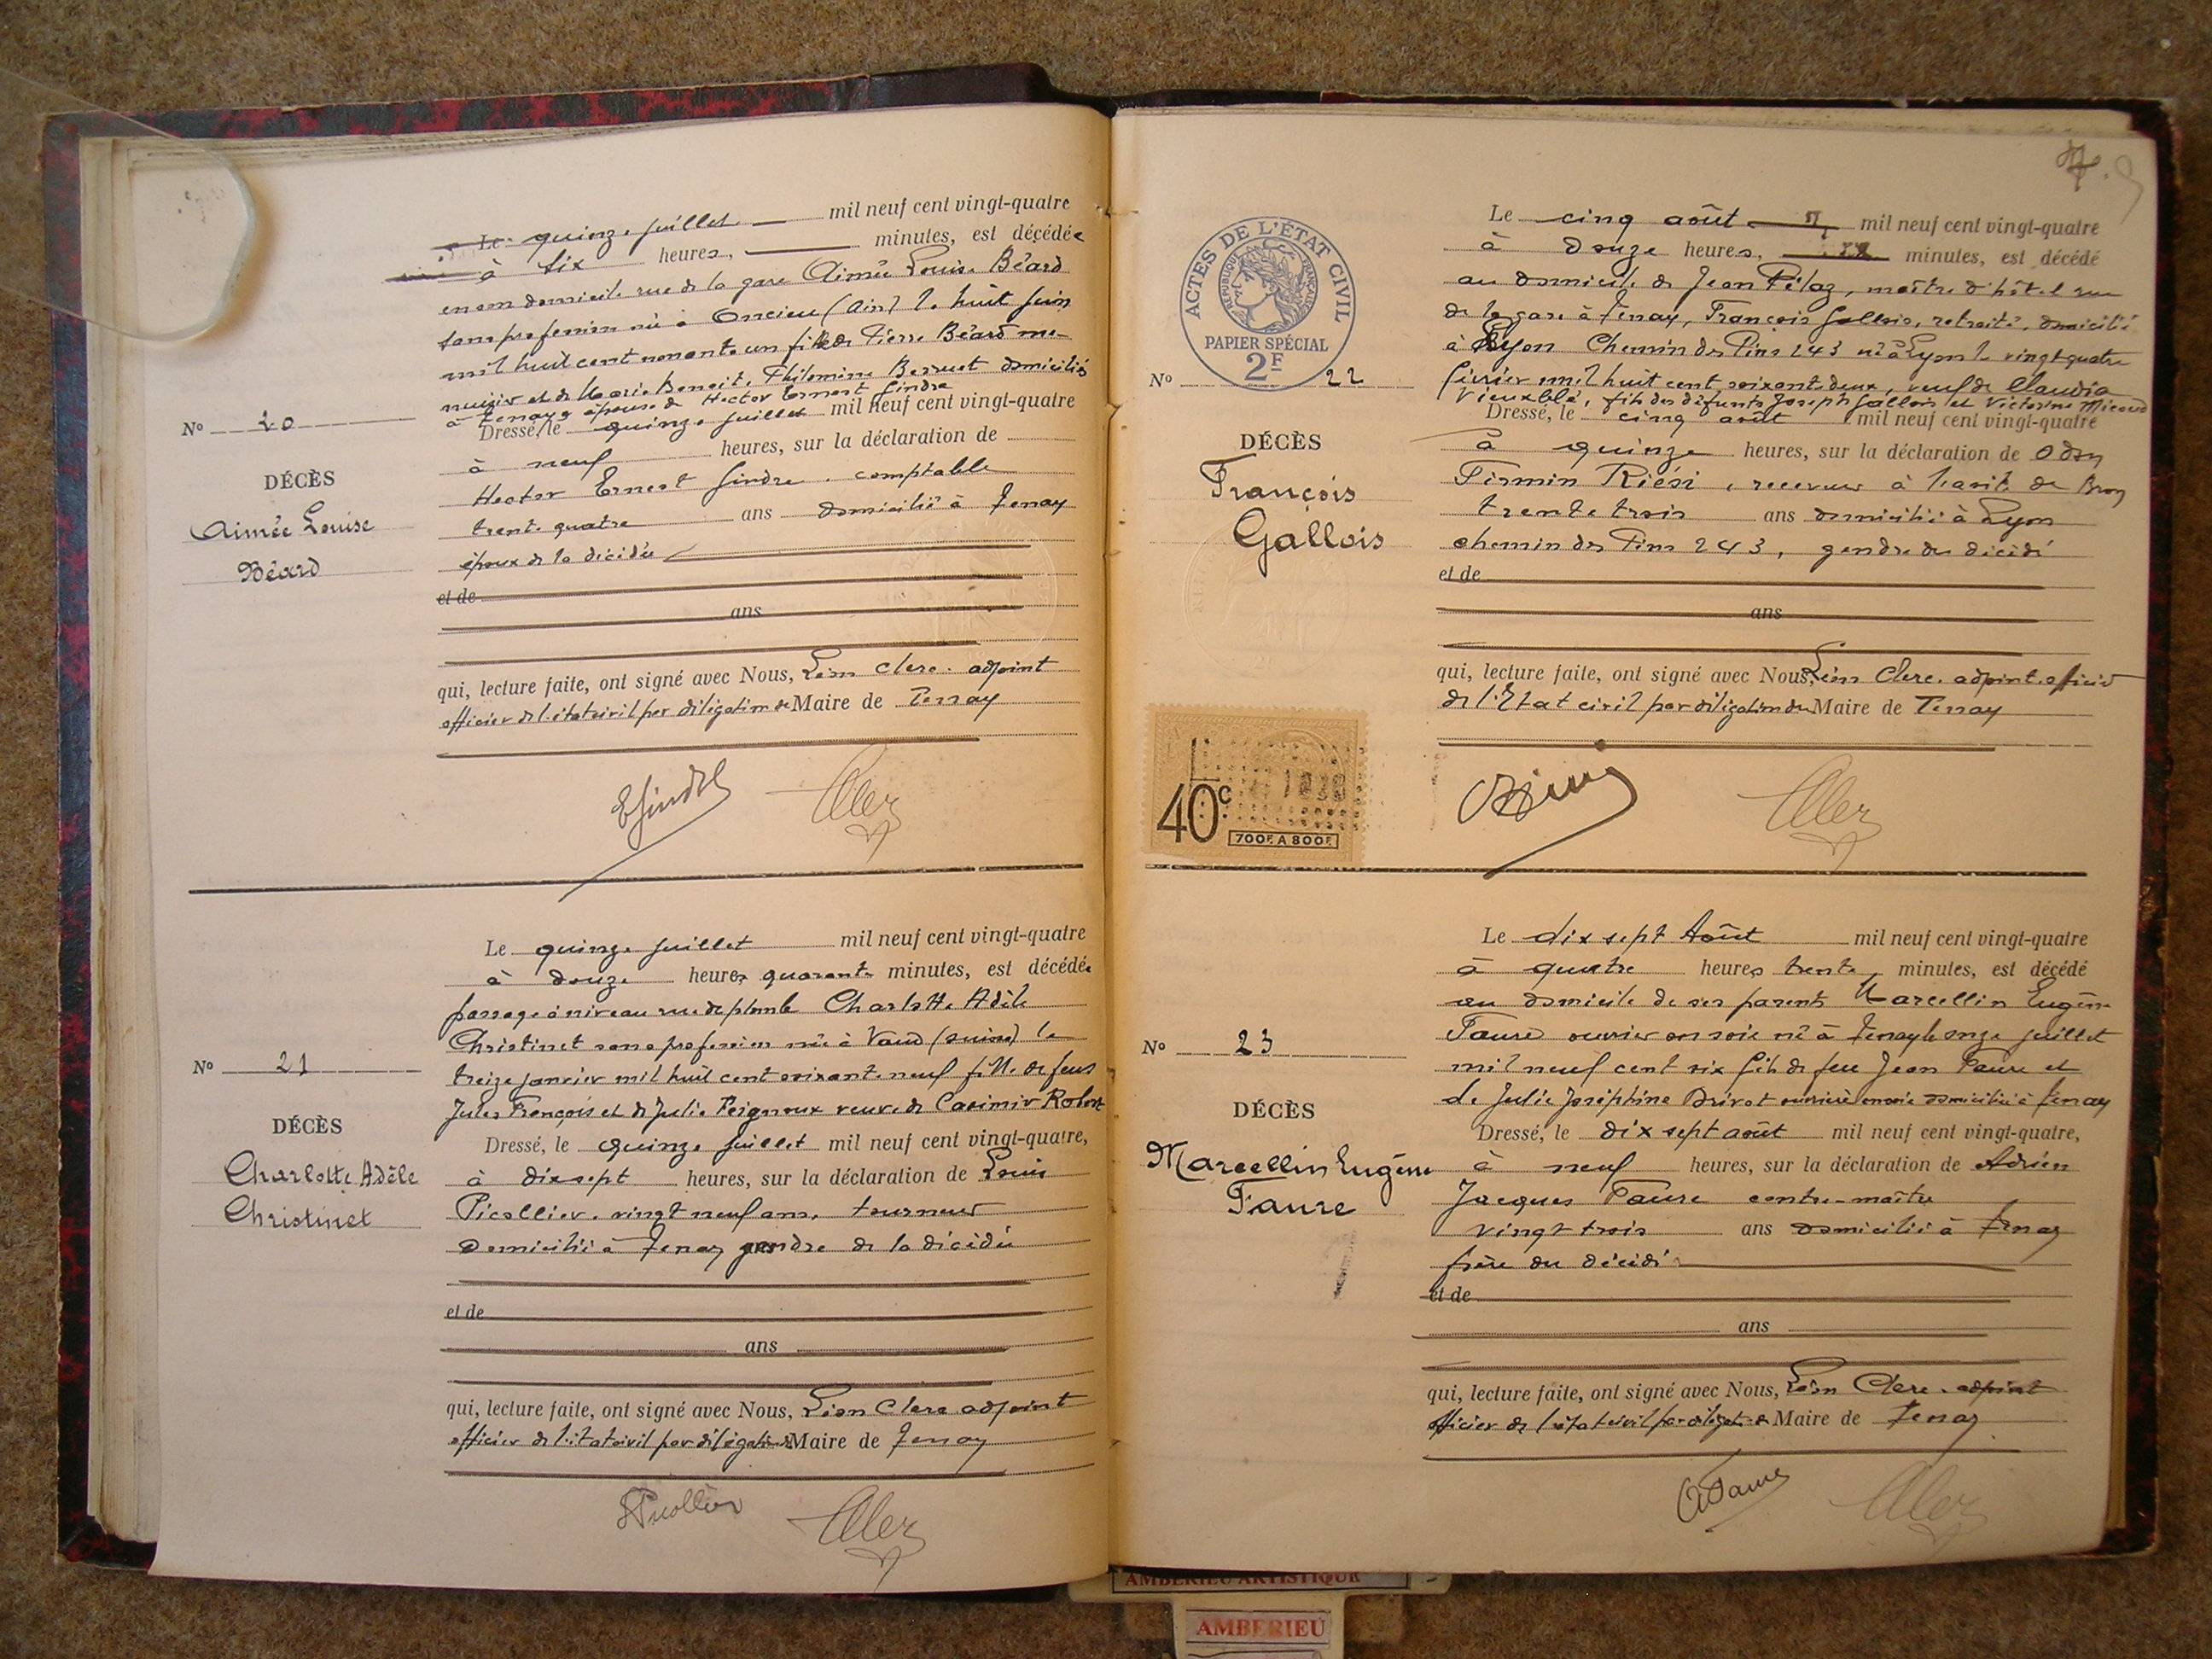 Le quinze juillet mil neuf cent vingt-quatre
à six heures, minutes, est décédée
en son domicile rue de la gare Aimée Louise Béard
sans profession née à Oncieu (Ain) le huit juin
mil huit cent nonante un fille de Pierre Béard me-
nuisier et de Marie Benoite Philomine domiciliés
à Tenay, épouse de Hector Ernest Gindre
No 20
DÉCÈS
Aimée Louise
Béard
Dressé, le quinze juillet mil neuf cent vingt-quatre
à neuf heures, sur la déclaration de
Hector Ernest Gindre, comptable
trente quatre ans domicilié à Tenay
époux de la décédée
et de
ans
qui, lecture faite, ont signé avec Nous, Léon Clerc, adjoint
officier de l'état civil par délégation du Maire de Tenay
EGindre
Clerc
Le quinze juillet mil neuf cent vingt-quatre
à douze heures quarante minutes, est décédée
passage à niveau rue de plomb Charlotte Adèle
Christinet sans profession née à Vaud (suisse) le
treize janvier mil huit cent soixante neuf fille de feus
Jules François et de Julie Peignoux veuve de Casimir Robert
No 21
DÉCÈS
Charlotte Adèle
Christinet
Dressé, le quinze juillet mil neuf cent vingt-quatre,
à dix sept heures, sur la déclaration de Louis
Picollier, vingt neuf ans, tourneur
domicilié à Tenay gendre de la décédée
et de
ans
qui, lecture faite, ont signé avec Nous, Léon Clerc adjoint
officier de l'état civil par délégation du Maire de Tenay
LPicollier
Clerc
ACTES DE L'ÉTAT CIVIL
RÉPUBLIQUE FRANÇAISE
PAPIER SPÉCIAL
2F
Le cinq août mil neuf cent vingt-quatre
à douze heures, minutes, est décédé
au domicile de Jean Pélaz, maître d'hôtel rue
de la gare à Tenay, François Gallois, retraité, domicilié
à Lyon Chemin des Pins 243 né à Lyon le vingt quatre
février mil huit cent soixante deux, veuf de Claudia
Vieuxblé, fils des défunts Joseph Gallois et Victorine Micoud
No 22
DÉCÈS
François
Gallois
Dressé, le cinq août mil neuf cent vingt-quatre
à quinze heures, sur la déclaration de Odon
Firmin Riési, receveur à l'asile de Bron
trente trois ans domicilié à Lyon
chemin des Pins 243, gendre du décédé
et de
ans
qui, lecture faite, ont signé avec Nous, Léon Clerc, adjoint officier
de l'Etat civil par délégation du Maire de Tenay
40c
700F A 800F
Clerc
Le dix sept Août mil neuf cent vingt-quatre
à quatre heures trente minutes, est décédé
au domicile de ses parents Marcellin Eugène
Faure ouvrier en soie né à Tenay le onze juillet
mil neuf cent six fils de feu Jean Faure et
de Julie Joséphine Drivot ouvrière en soie domiciliée à Tenay
No 23
DÉCÈS
Marcellin Eugène
Faure
Dressé, le dix sept août mil neuf cent vingt-quatre,
à neuf heures, sur la déclaration de Adrien
Jacques Faure contre-maître
vingt trois ans domicilié à Tenay
frère du décédé
et de
ans
qui, lecture faite, ont signé avec Nous, Léon Clerc, adjoint
officier de l'état civil par délégation du Maire de Tenay
AFaure
Clerc
AMBERIEU ARTISTIQUE
AMBERIEU